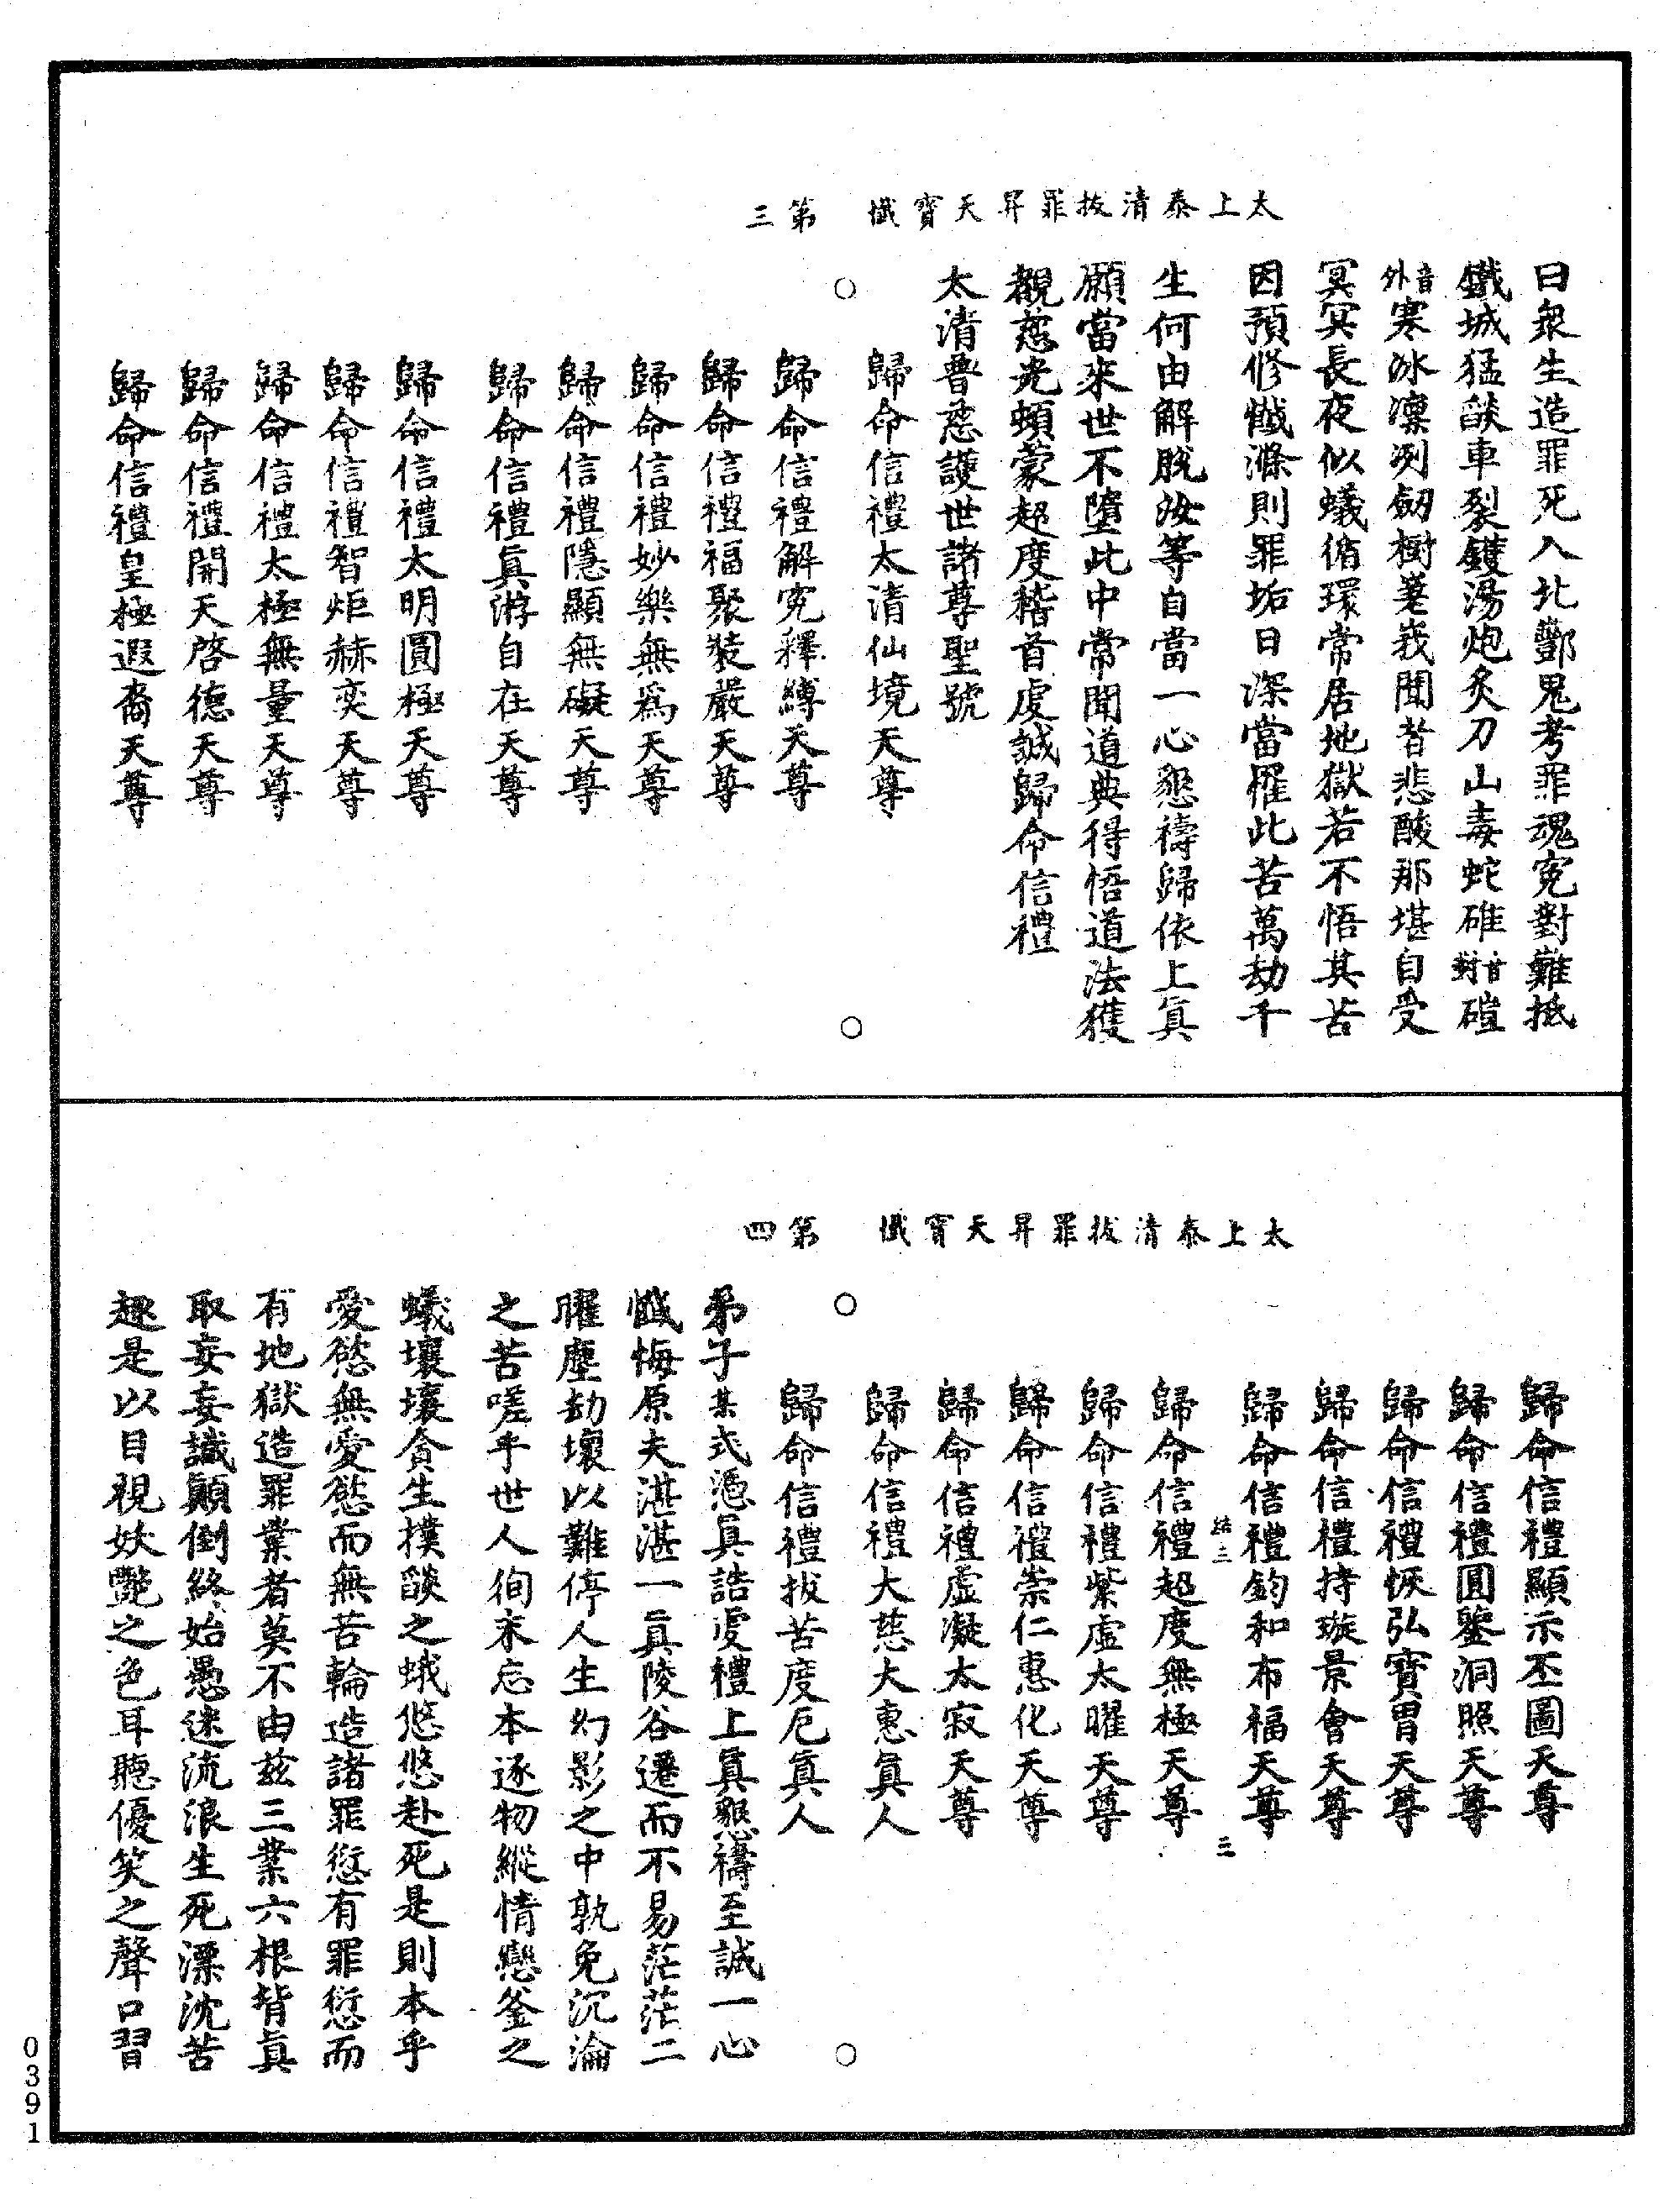 太上泰清拔罪昇天寶懺　第三
曰衆生造罪死入北酆鬼考罪魂寃對難抵
鐵城猛燄車裂鑊湯炮炙刀山毒蛇碓音對磑
音外寒冰凜冽劒樹䇓峩聞者悲酸那堪自受
冥冥長夜似蟻循環常居地獄若不悟其苦
因預修懺滌則罪垢日深當罹此苦萬劫千
生何由解脫汝等自當一心懇禱歸依上眞
願當來世不墮此中常聞道典得悟道法獲
覩慈光頓蒙超度稽首虔誠歸命信禮
太清普慈護世諸尊聖號
歸命信禮太清仙境天尊
○　○
歸命信禮解寃釋縛天尊
歸命信禮福聚裝嚴天尊
歸命信禮妙樂無爲天尊
歸命信禮隱顯無礙天尊
歸命信禮眞游自在天尊
歸命信禮太明圓極天尊
歸命信禮智炬赫奕天尊
歸命信禮太極無量天尊
歸命信禮開天啓德天尊
歸命信禮皇極遐裔天尊
太上泰清拔罪昇天寶懺　第四
歸命信禮顯示丕圖天尊
歸命信禮圓鑒洞照天尊
歸命信禮恢弘寶胄天尊
歸命信禮持璇景會天尊
歸命信禮鈞和布福天尊
結三　三
歸命信禮超度無極天尊
歸命信禮紫虛太曜天尊
歸命信禮崇仁惠化天尊
歸命信禮虛凝太寂天尊
歸命信禮大慈大惠眞人
○　○
歸命信禮拔苦度厄眞人
弟子某式憑眞誥虔禮上眞懇禱至誠一心
懺悔原夫湛湛一眞陵谷遷而不易茫茫二
曜塵劫壞以難停人生幻影之中孰免沉淪
之苦嗟乎世人徇末忘本逐物縱情戀釜之
蟻壤壤貪生撲燄之蛾悠悠赴死是則本乎
愛慾無愛慾而無苦輪造諸罪愆有罪愆而
有地獄造罪業者莫不由兹三業六根背眞
取妄妄識顚倒終始愚迷流浪生死漂沈苦
趣是以目視妖艷之色耳聽優笑之聲口習
0391